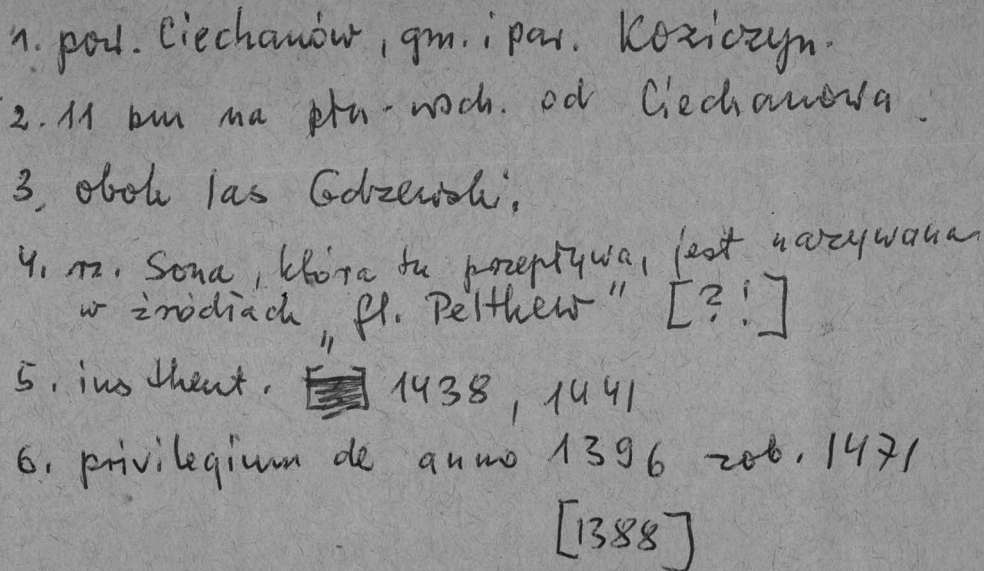 1. pow. Ciechanów, gm. i par. Koziczyn.
2. 11 km na płn-wsch. od Ciechanowa.
3, obok las Gdzewski.
4. rz. Sona, która tu przepływa, jest nazywana
w źródłach „fl. Pelthew" [?!]
5. ius theut. 1438, 1441
6. privilegium de anno 1396 zob. 1471
[1388]